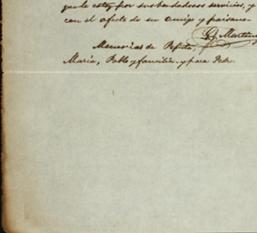 que le estoy por sus bondadosos servicios, y
con el afecto de su amigo y paisano
G. Martinez
Memorias de Pepita,
Maria, Pablo y familia y para Vd.